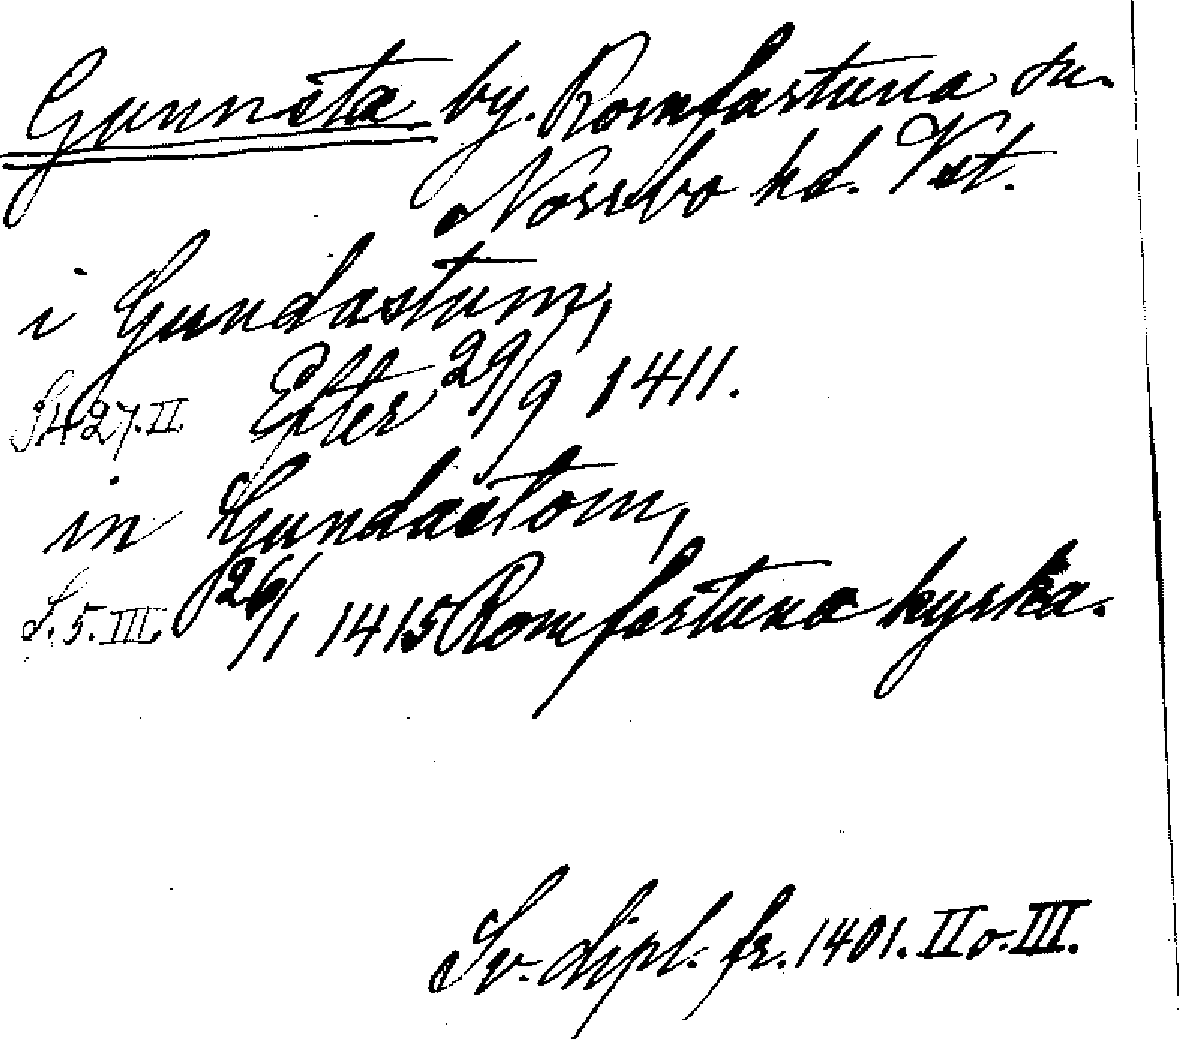 Gunnsta by. Romfartuna sn.
Norrbo hd. Vst.
i Gundastum,
S. 427. II Efter 29/9 1411.
in Gundastom,
S. 5. III. 26/1 1415 Romfartuna kyrka.
Sv. dipl. fr. 1401. II o. III.